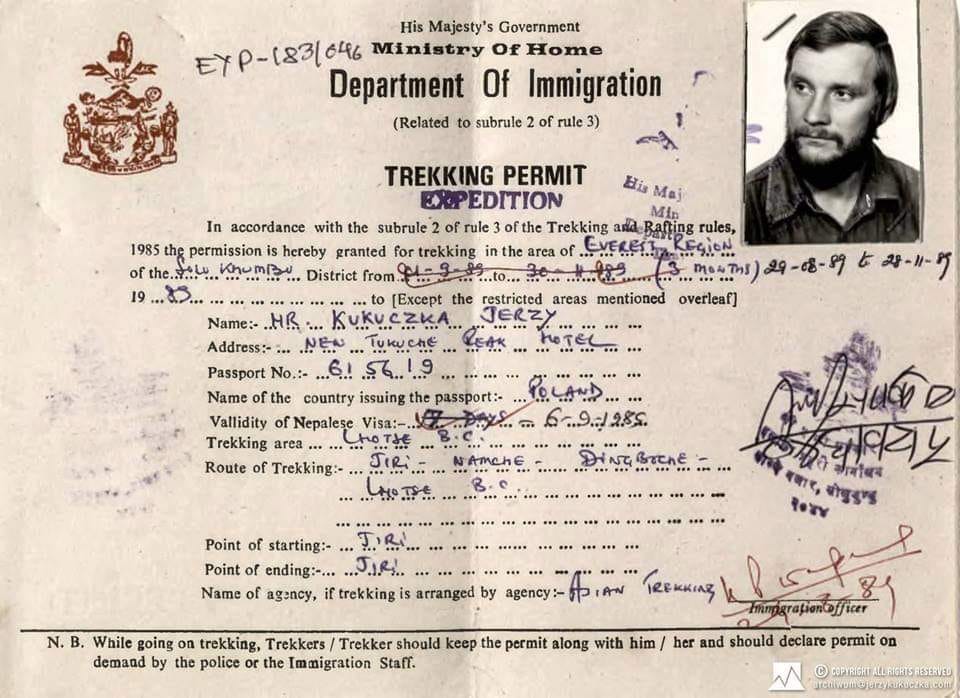 His Majesty's Government
EXP-183/046 Ministry Of Home
Department Of Immigration
(Related to subrule 2 of rule 3)
TREKKING PERMIT
EXPEDITION
His Maj
Min
Depart
In accordance with the subrule 2 of rule 3 of the Trekking and Rafting rules,
1985 the permission is hereby granted for trekking in the area of EVEREST REGION
of the SOLU KHUMBU District from 01-9-89 to 30-11-989 (3 MONTHS) 29-08-89 to 28-11-89
19 89 to [Except the restricted areas mentioned overleaf]
Name:- MR KUKUCZKA JERZY
Address:- NEW TUKUCHE PEAK HOTEL
Passport No.:- 615619
Name of the country issuing the passport:- POLAND
Vallidity of Nepalese Visa:- DAYS - 6-9-1989.
Trekking area LHOTSE B.C.
Route of Trekking:- JIRI - NAMCHE - DINGBOCHE -
LHOTSE B.C.
Point of starting:- JIRI
Point of ending:- JIRI
Name of agency, if trekking is arranged by agency:- ASIAN TREKKING
Immigration Officer
२०४४
N. B. While going on trekking, Trekkers / Trekker should keep the permit along with him / her and should declare permit on
demand by the police or the Immigration Staff.
© COPYRIGHT ALL RIGHTS RESERVED
archiwum@jerzykukuczka.com